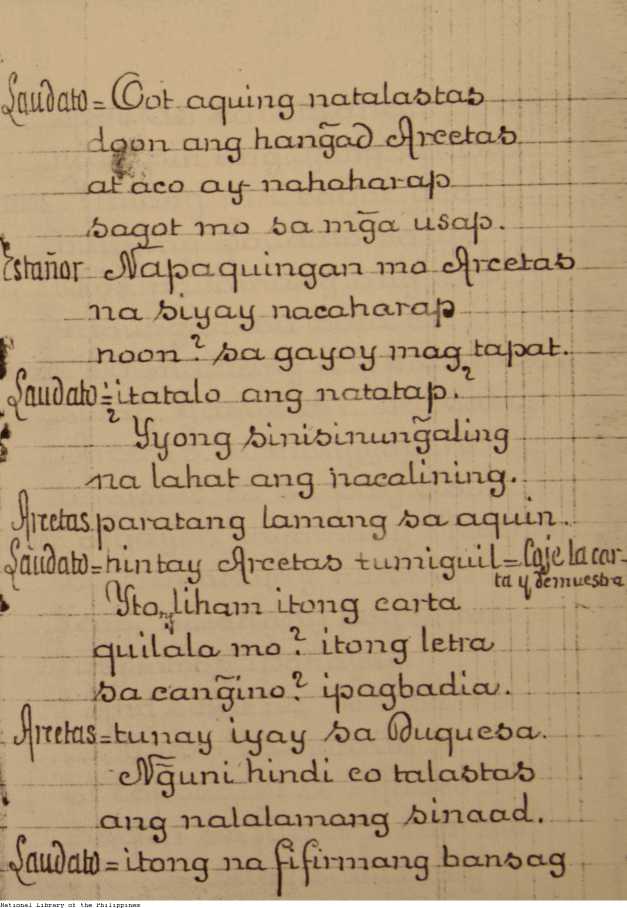 Laudato = Oot aquing natalastas
doon ang hang̃ad Arcetas
at aco ay nahaharap
sagot mo sa mg̃a usap.
Estañor Nãpaquingan mo Arcetas
na siyay nacaharap
noon? sa gayoy mag tapat.
Laudato = itatalo ang natatap.?
? Yyong sinisinung̃aling
na lahat ang nacalining.
Arcetas paratang lamang sa aquin.
Laudato = hintay Arcetas tumiguil = Coje la car-
ta y demuestra
Yto,ng liham itong carta
quilala mo? itong letra
sa cang̃ino? ipagbadia.
Arcetas = tunay iyay sa Duquesa.
Ng̃uni hindi co talastas
ang nalalamang sinaad.
Laudato = itong na fifirmang bansag
National Library of the Philippines